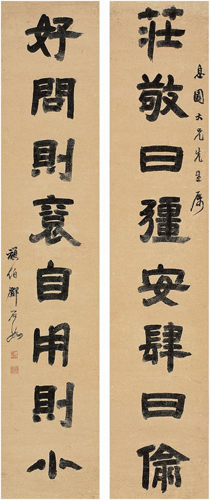 莊敬日彊安肆日偷
息園大兄先生屬
好問則裒自用則小
頑伯鄧石如